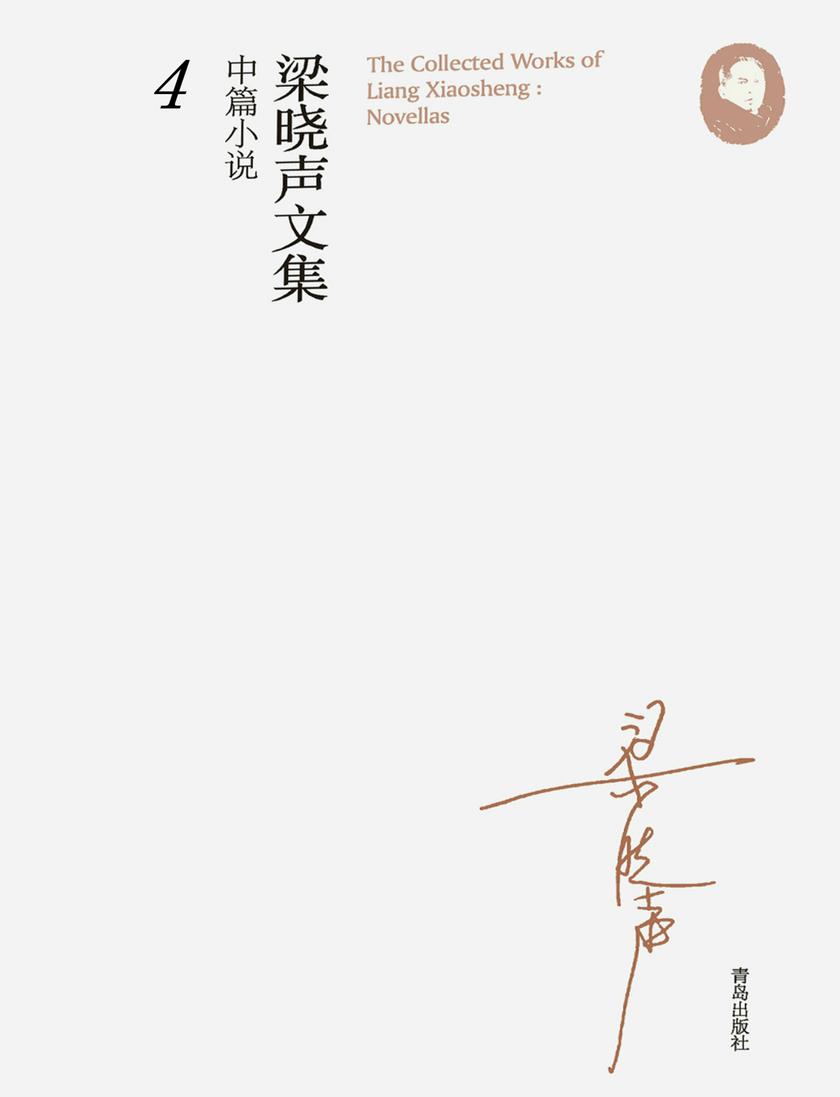 4
中篇小说
梁晓声文集
The Collected Works of
Liang Xiaosheng :
Novellas
梁晓声
青岛出版社